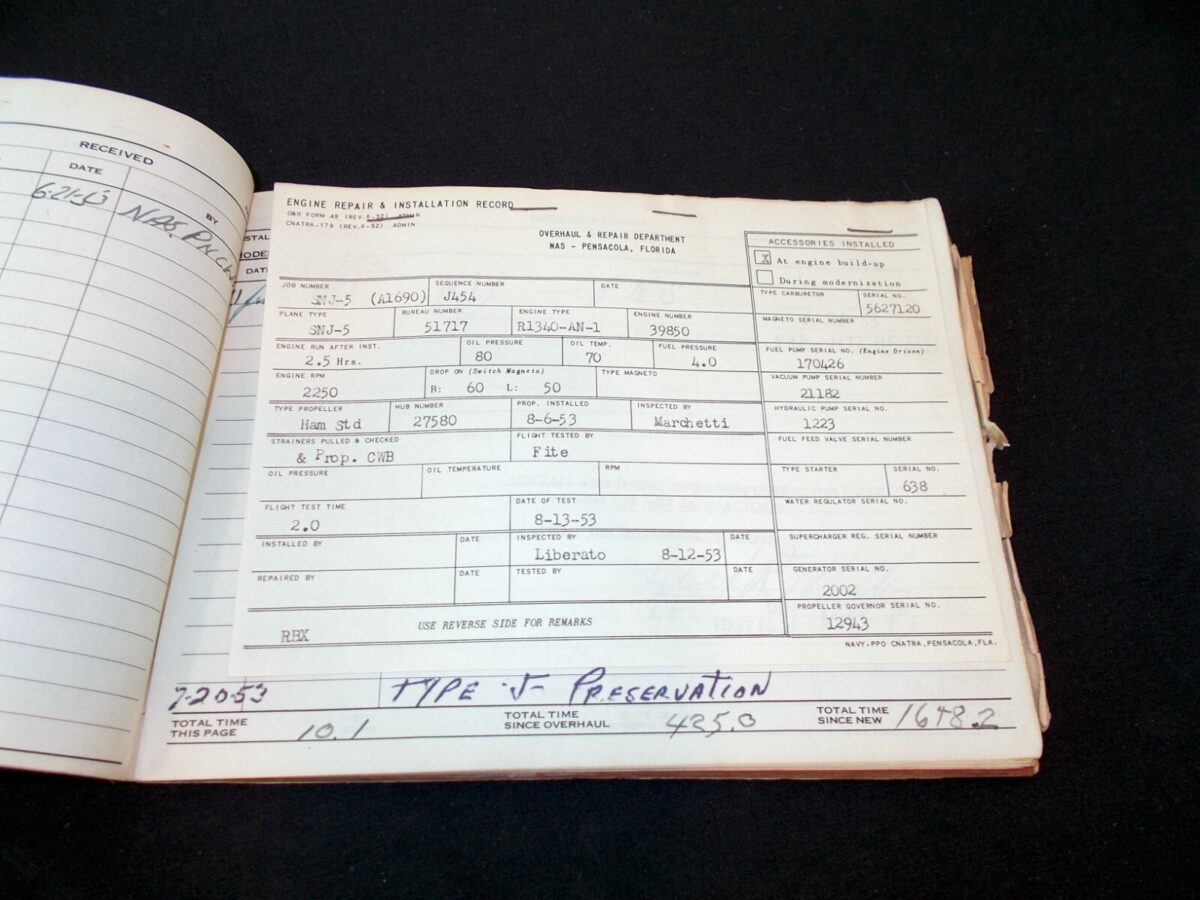 RECEIVED
DATE
BY
6-21-53
NAS. PNCLA
DATE
ENGINE REPAIR & INSTALLATION RECORD
O&R FORM 48 (REV.6-52) ADMIN
CNATRA-179 (REV.6-52) ADMIN
OVERHAUL & REPAIR DEPARTMENT
NAS - PENSACOLA, FLORIDA
JOB NUMBER SEQUENCE NUMBER DATE
SNJ-5 (A1690) J454
PLANE TYPE BUREAU NUMBER ENGINE TYPE ENGINE NUMBER
SNJ-5 51717 R1340-AN-1 39850
ENGINE RUN AFTER INST. OIL PRESSURE OIL TEMP. FUEL PRESSURE
2.5 Hrs. 80 70 4.0
ENGINE RPM DROP ON (Switch Magneto) TYPE MAGNETO
2250 R: 60 L: 50
TYPE PROPELLER HUB NUMBER PROP. INSTALLED INSPECTED BY
Ham Std 27580 8-6-53 Marchetti
STRAINERS PULLED & CHECKED FLIGHT TESTED BY
& Prop. CWB Fite
OIL PRESSURE OIL TEMPERATURE RPM
FLIGHT TEST TIME DATE OF TEST
2.0 8-13-53
INSTALLED BY DATE INSPECTED BY DATE
Liberato 8-12-53
REPAIRED BY DATE TESTED BY DATE
RBX USE REVERSE SIDE FOR REMARKS
ACCESSORIES INSTALLED
X At engine build-up
During modernization
TYPE CARBURETOR SERIAL NO.
5627120
MAGNETO SERIAL NUMBER
FUEL PUMP SERIAL NO. (Engine Driven)
170426
VACUUM PUMP SERIAL NUMBER
21182
HYDRAULIC PUMP SERIAL NO.
1223
FUEL FEED VALVE SERIAL NUMBER
TYPE STARTER SERIAL NO.
638
WATER REGULATOR SERIAL NO.
SUPERCHARGER REG. SERIAL NUMBER
GENERATOR SERIAL NO.
2002
PROPELLER GOVERNOR SERIAL NO.
12943
NAVY-PPO CNATRA, PENSACOLA, FLA.
7-20-53 TYPE J PRESERVATION
TOTAL TIME THIS PAGE 10.1 TOTAL TIME SINCE OVERHAUL 425.0 TOTAL TIME SINCE NEW 1648.2